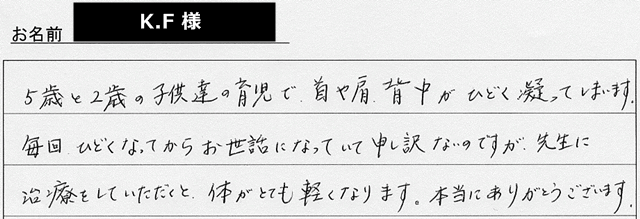 お名前 K.F 様
5歳と2歳の子供達の育児で、首や肩、背中がひどく凝ってしまいます。
毎回、ひどくなってからお世話になっていて申し訳ないのですが、先生に
治療をしていただくと、体がとても軽くなります。本当にありがとうございます。